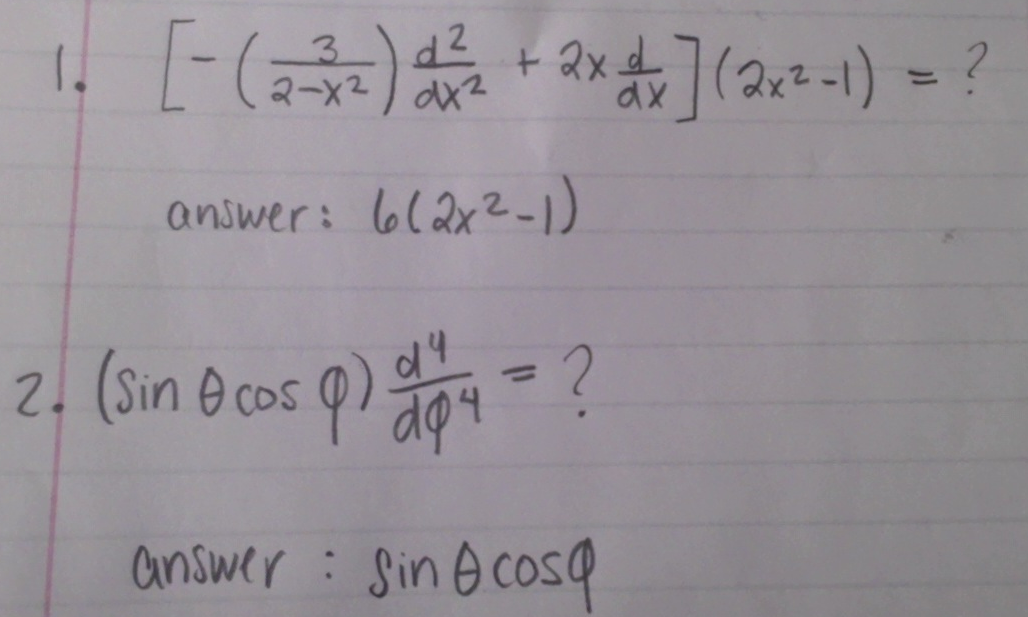 1. [-(3/(2-x²)) d²/dx² + 2x d/dx](2x²-1) = ?
answer: 6(2x²-1)
2. (sin θ cos φ) d⁴/dφ⁴ = ?
answer : sin θ cos φ